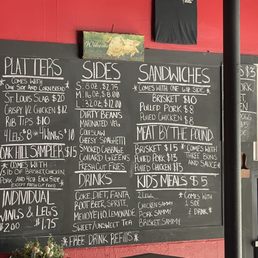 Welcome
PLATTERS
* COMES WITH
ONE SIDE AND CORNBREAD *
ST LOUIS SLAB $20
CRISPY 12 CHICKEN $12
RIB TIPS $10
4 LEGS $8 4 WINGS $10
OAK HILL SAMPLER $15
* COMES WITH
BRISKET, CHICKEN
PORK AND
INDIVIDUAL
WINGS & LEGS
$2.00 $1.75
SIDES
S: 8 OZ. $2.75
L: 32 OZ. $12.00
DIRTY BEANS
MARINATED VEG
COLESLAW
CHEESY SPAGHETTI
SMOKED CABBAGE
COLLARD GREENS
FRESH-CUT FRIES
DRINKS
COKE, DIET, FANTA
ROOT BEER, SPRITE,
MELLO YELLO, LEMONADE
SWEET/UNSWEET TEA
SANDWICHES
* COMES WITH ONE 8OZ SIDE *
BRISKET $10
PULLED PORK $8
PULLED CHICKEN $8
MEAT BY THE POUND
BRISKET $15
PULLED PORK $13
PULLED CHICKEN $11
* COMES WITH
THREE
BUNS AND
SAUCE *
KIDS MEALS $5
2 LEGS
CHICKEN SAMMY
PORK SAMMY
BRISKET SAMMY
* COMES
WITH 1
SIDE
& DRINK *
* FREE DRINK REFILLS *